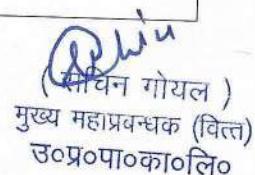 ( सचिन गोयल )
मुख्य महाप्रवन्धक (वित्त)
उ०प्र०पा०का०लि०